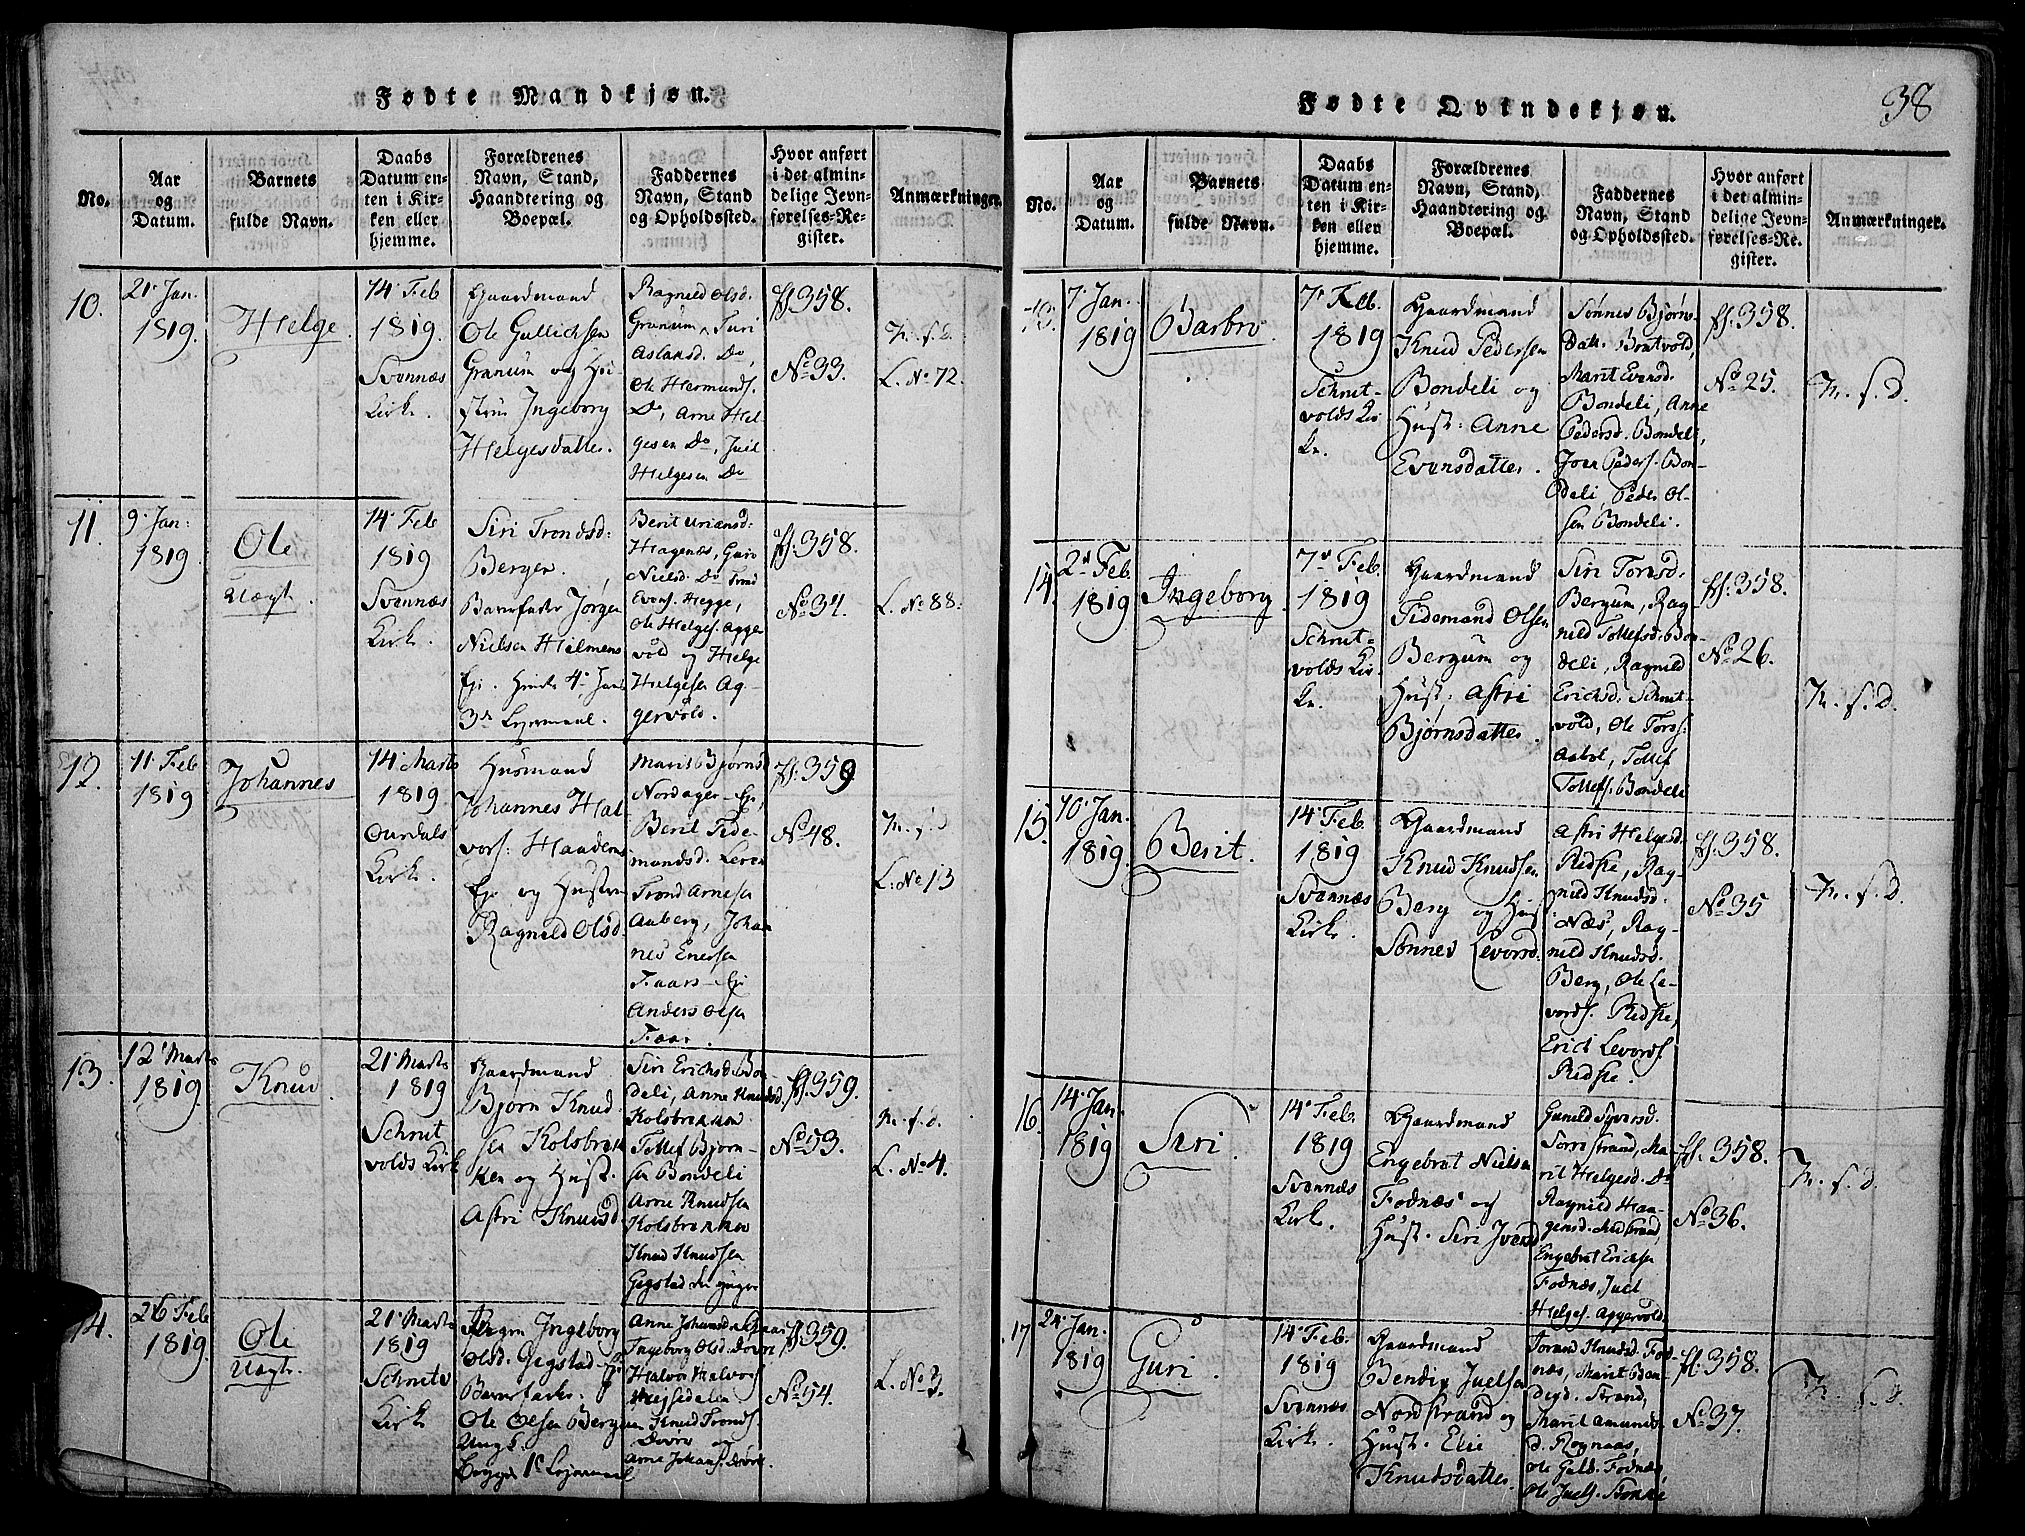 Fødte Mandkjøn.
No.
Aar
og
Datum.
Barnets
fulde Navn.
Daabs
Datum en-
ten i Kir-
ken eller
hjemme.
Forældrenes
Navn, Stand,
Haandtering og
Boepæl.
Faddernes
Navn, Stand
og Opholdssted.
Hvor anført
i det almin-
delige Jevn-
førelses-Re-
gister.
Anmærkninger.
10.
21. Jan.
1819.
Helge
14. Feb
1819.
Svennæs
Kirke.
Gaardmand
Ole Gullichsen
Granum og Hu-
strue Ingeborg
Helgesdatter.
Ragnild Olsd.
Granum, Turi
Aslaksd. Do,
Ole Hermunds.
Do, Arne Hel-
gesen Do, Juel
Helgesen Do
ff. 358.
No 33.
N. f. d.
L. No 72.
11.
9. Jan:
1819.
Ole
Uægte.
14. Feb
1819
Svennæs
Kirke.
Siri Trondsd:
Bergen.
Barnefader Jørgen
Nielsen Hilmens
Ej. Hendes 4de, hans
3de Lejermaal.
Berit
Hagenæs, Guro
Nielsd. Do Trond
Evens. Hegge,
Ole Helges. Agger
vold og Helge
Helgesen Ag-
gervold.
ff. 358.
No 34.
L. No 88.
12.
11. Feb
1819
Johannes
14. Marts
1819
Ourdals
Kirke.
Husmand
Johannes Hal
vors: Haadems
Eje og Hustru
Ragnild Olsd.
Marit Bjørnsd
Nordager-Ej,
Berit Tide-
mandsd.
Trond Arnesen
Aaberg, Johan
nes Enersen
Faars-Ej
Anders Olsen
Faar.
ff. 359
No 48.
N. f. d
L. No 13
13.
12. Marts
1819
Knud
21. Marts
1819
Schrut
volds Kirke
Gaardmand
Bjørn Knud-
sen Kolsbrek
ken og Hust.
Astri Knudsd
Siri Ericksd. Bon-
deli, Anne Knudsd.
Kolsbrekken
Tollef Bjørn-
sen Bondeli
Arne Knudsen
Kolsbrekken
Knud Knudsen
Gigstad den yngre
ff. 359.
No 53.
N. f. d.
L. No 4.
14.
26 Feb
1819.
Ole
Uægte.
21. Marts
1819
Schrutv
Kirke
Pigen Ingeborg
Olsd. Gigstad-Ej
Barnefader:
Ole Olsen Bergum
Ungk.
Begges 1ste Lejermaal
Anne Johansd.
Ingeborg Olsd. Dovre
Halvor Halvors.
Hejsedalen
Knud Tronds.
Dovre og
Arne Johans. Dovre
ff. 359.
No 54.
L. No 3.
Fødte Qvindekjøn.
38
No.
Aar
og
Datum.
Barnets
fulde Navn.
Daabs
Datum en-
ten i Kir-
ken eller
hjemme.
Forældrenes
Navn, Stand,
Haandtering og
Boepæl.
Faddernes
Navn, Stand
og Opholdssted.
Hvor anført
i det almin-
delige Jevn-
førelses-Re-
gister.
Anmærkninger.
13.
7. Jan.
1819
Barbro
7. Feb.
1819
Schrut-
volds Kir
ke.
Gaardmand
Knud Pedersen
Bondeli og
Hust: Anne
Evensdatter.
Sønnev Bjørns-
Datt. Bontvold,
Marit Evensd.
Bondeli, Anne
Pedersd. Bondeli,
Joen Peders. Bon-
deli, Peder Ol-
sen Bondeli.
ff. 358.
No 25.
N. f. d.
14.
2. Feb.
1819
Ingeborg
7. Feb.
1819
Schrut-
volds Kir-
ke.
Gaardmand
Tidemand Olsen
Bergum og
Hust, Astri
Bjørnsdatter.
Siri Toresd.
Bergum, Rag-
nild Tollefsd. Bon-
deli, Ragnild
Ericksd. Schrut-
vold, Ole Tores.
Aabøl, Tollef
Tollefs. Bondeli
ff. 358.
No 26.
N. f. d.
15.
10. Jan.
1819.
Berit.
14. Feb.
1819
Svennæs
Kirke.
Gaardmand
Knud Knudsen
Berg og Hust
Sønnev Levorsd.
Astri Helgesd.
Ridste, Rag-
nild Knudsd.
Næs, Rag-
nild Knudsd.
Berg, Ole Le-
vords. Ridste,
Erick Levords
Ridste.
ff. 358.
No 35
N. f. d.
16.
14. Jan.
1819
Siri.
14. Feb.
1819
Svennæs
Kirke.
Gaardmand
Engebret Nielsen
Fodnæs og
Hust. Siri Iversd
Gunild Syversd.
Sørrestrand, Ma-
rit Helgesd. Do
Ragnild Haa-
gensd. Midstrand,
Engebret Ericksen
Fodnæs, Juel
Helges. Aggervold.
ff. 358.
No 36.
N. f. d.
17
24. Jan.
1819
Guri.
14. Feb.
1819
Svennæs
Kirke.
Gaardmand
Bendix Juelsen
Nordstrand og
Hust. Elie
Knudsdatter.
Jorand Knudsd. Fod-
næs, Marit Ben-
dixd. Strand,
Marit Amunds-
d. Rognaas,
Ole Gulb. Fodnæs,
Ole Juels. Bakke
ff. 358.
No 37.
N. f. d.